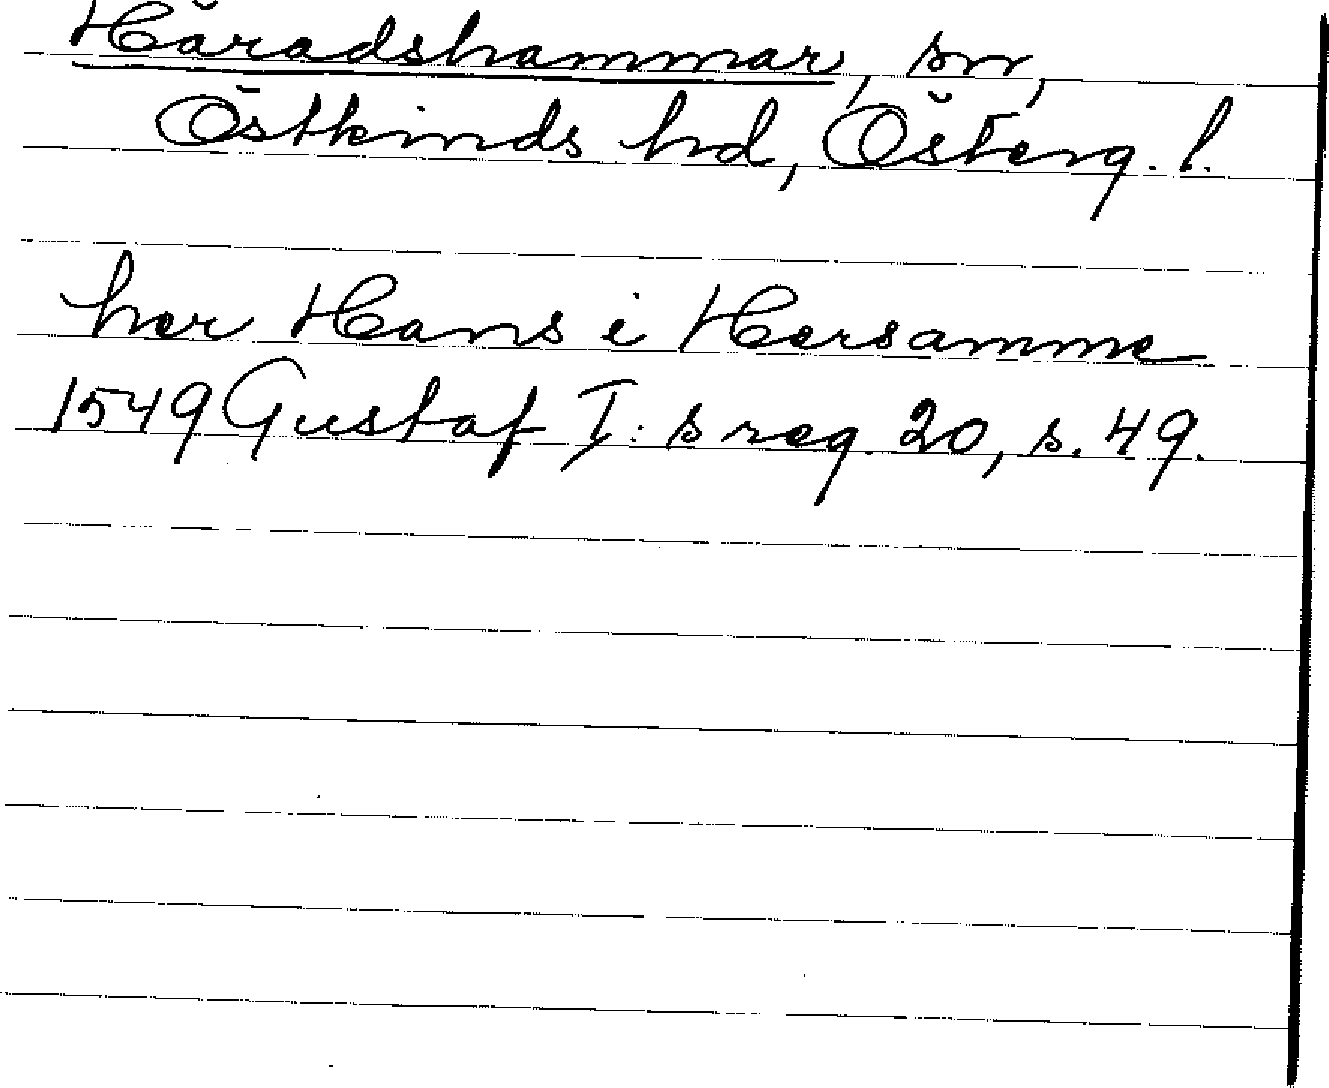 Häradshammar, sn,
Östkinds hd, Österg. l.
her Hans i Hersamme
1549 Gustaf I: s reg. 20, s. 49.